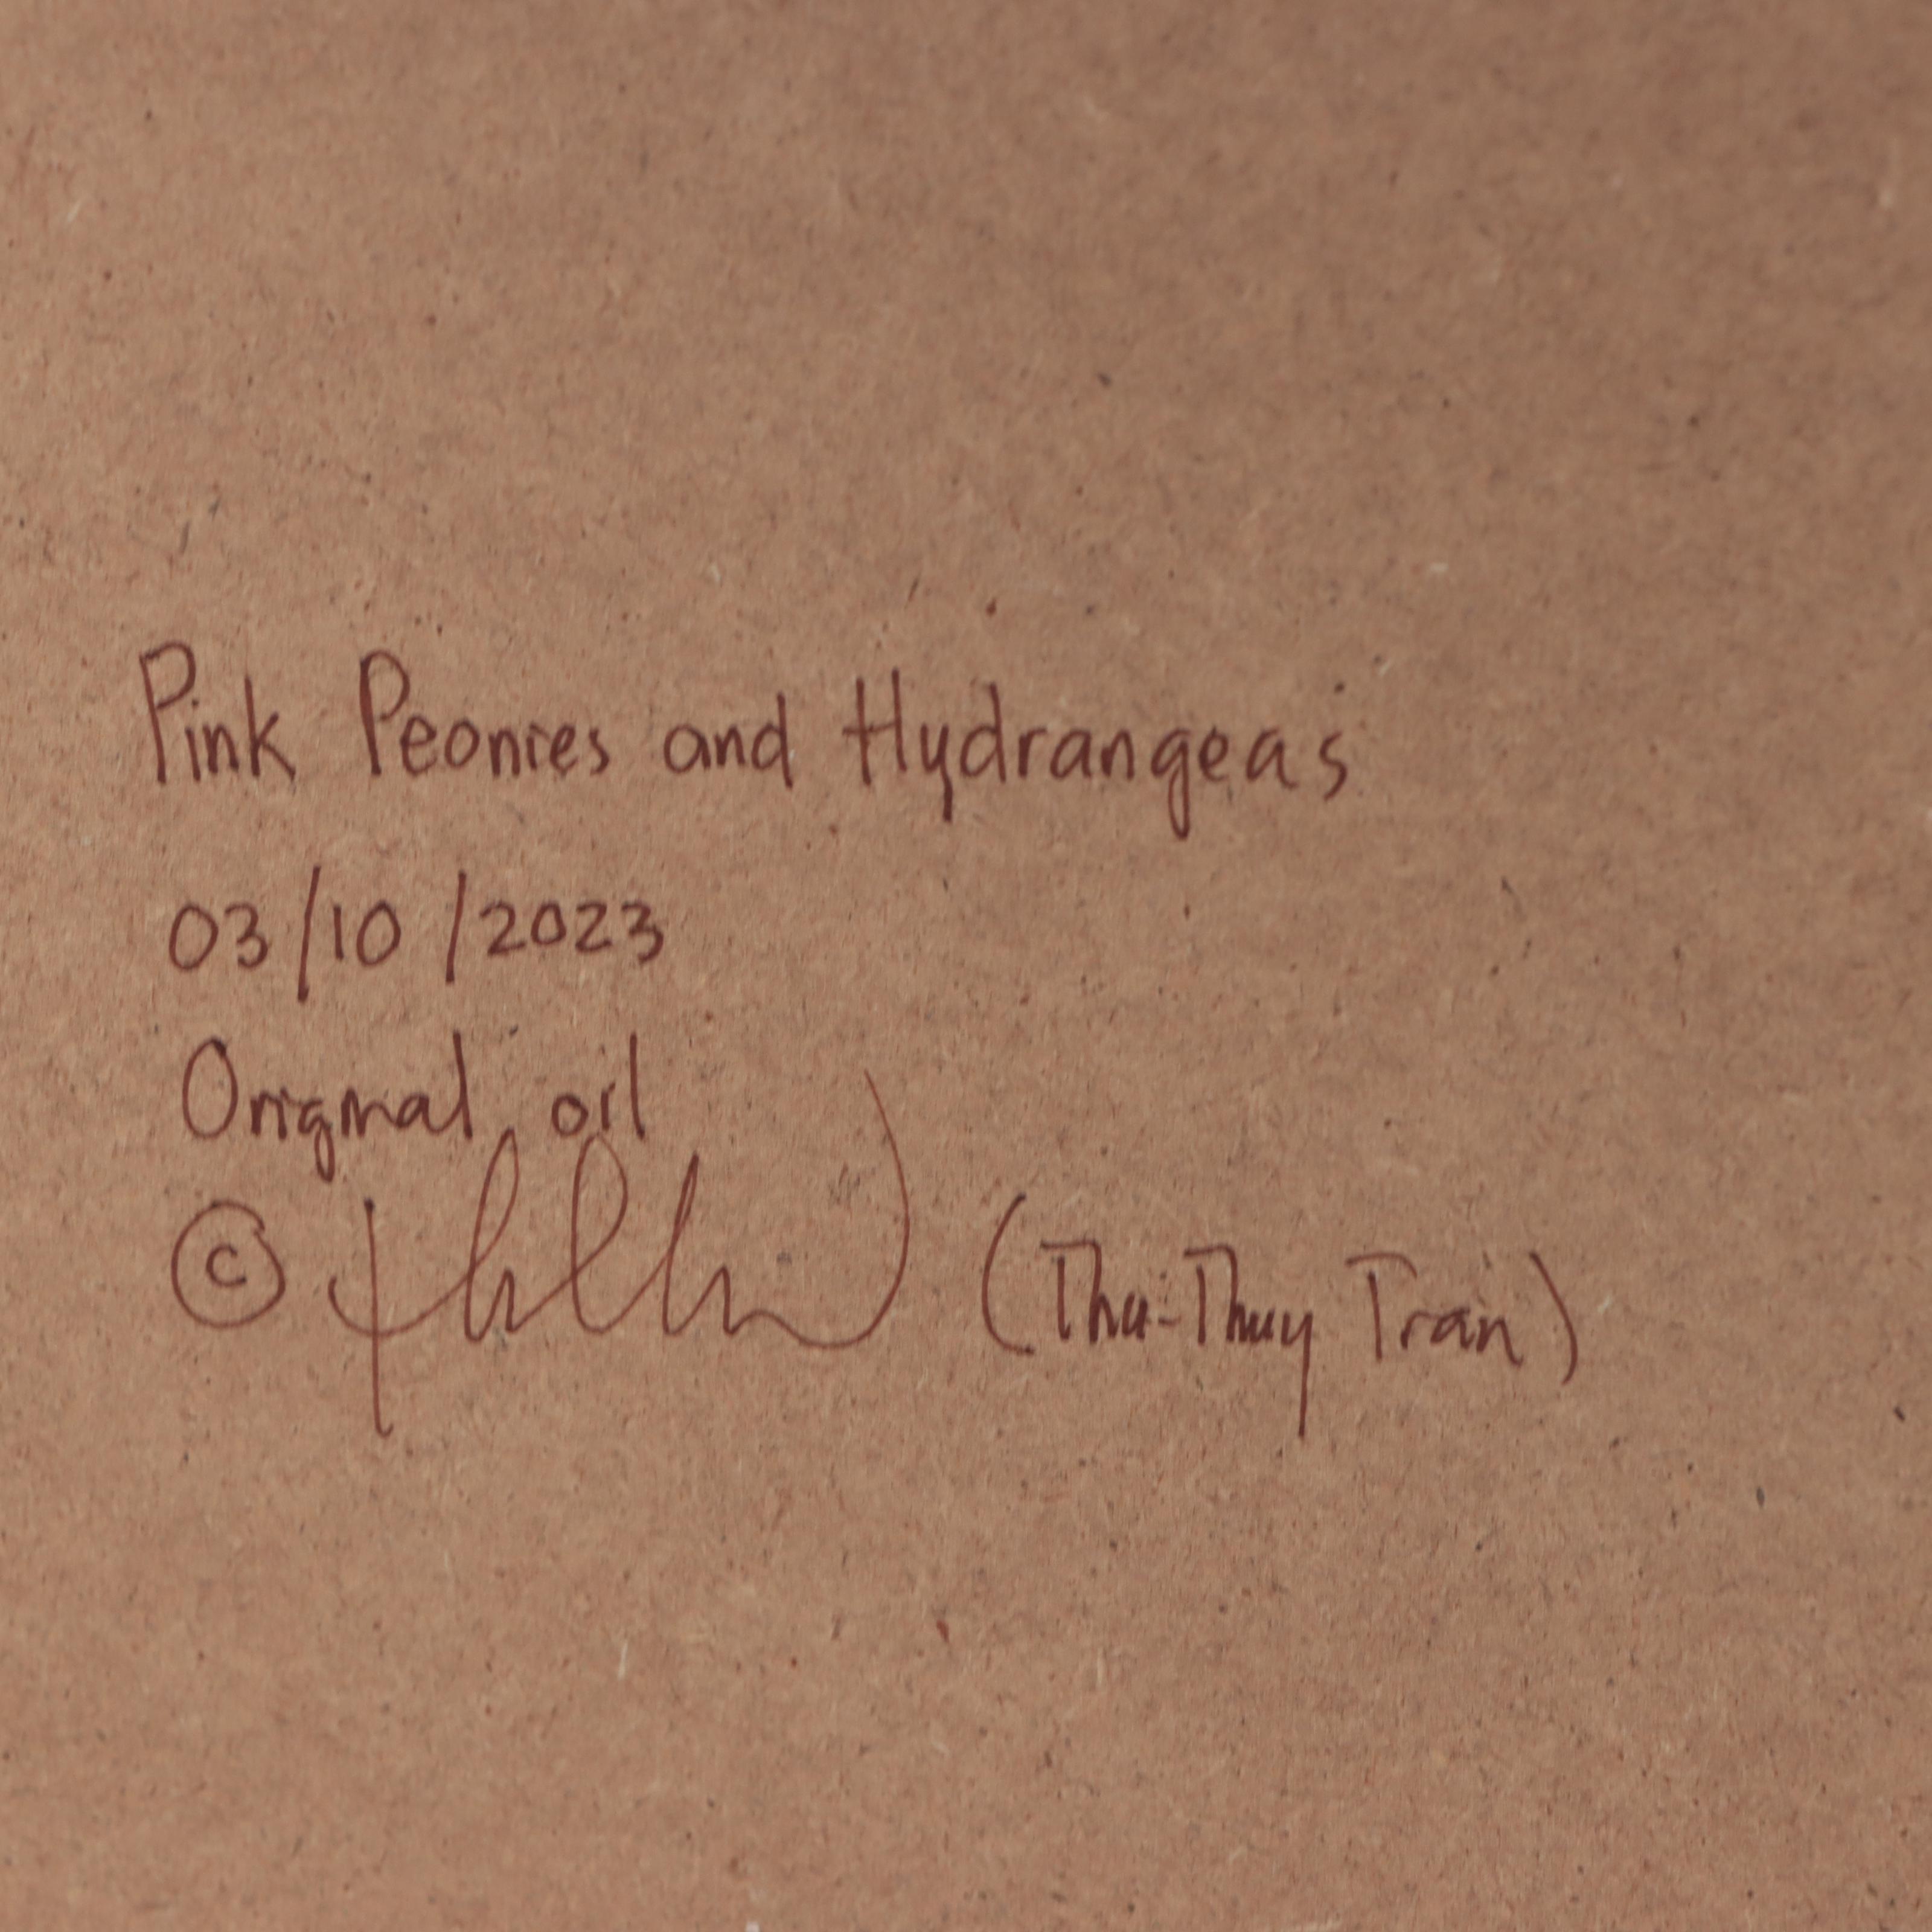 Pink Peonies and Hydrangeas
03/10/2023
Original oil
© (Thu-Thuy Tran)